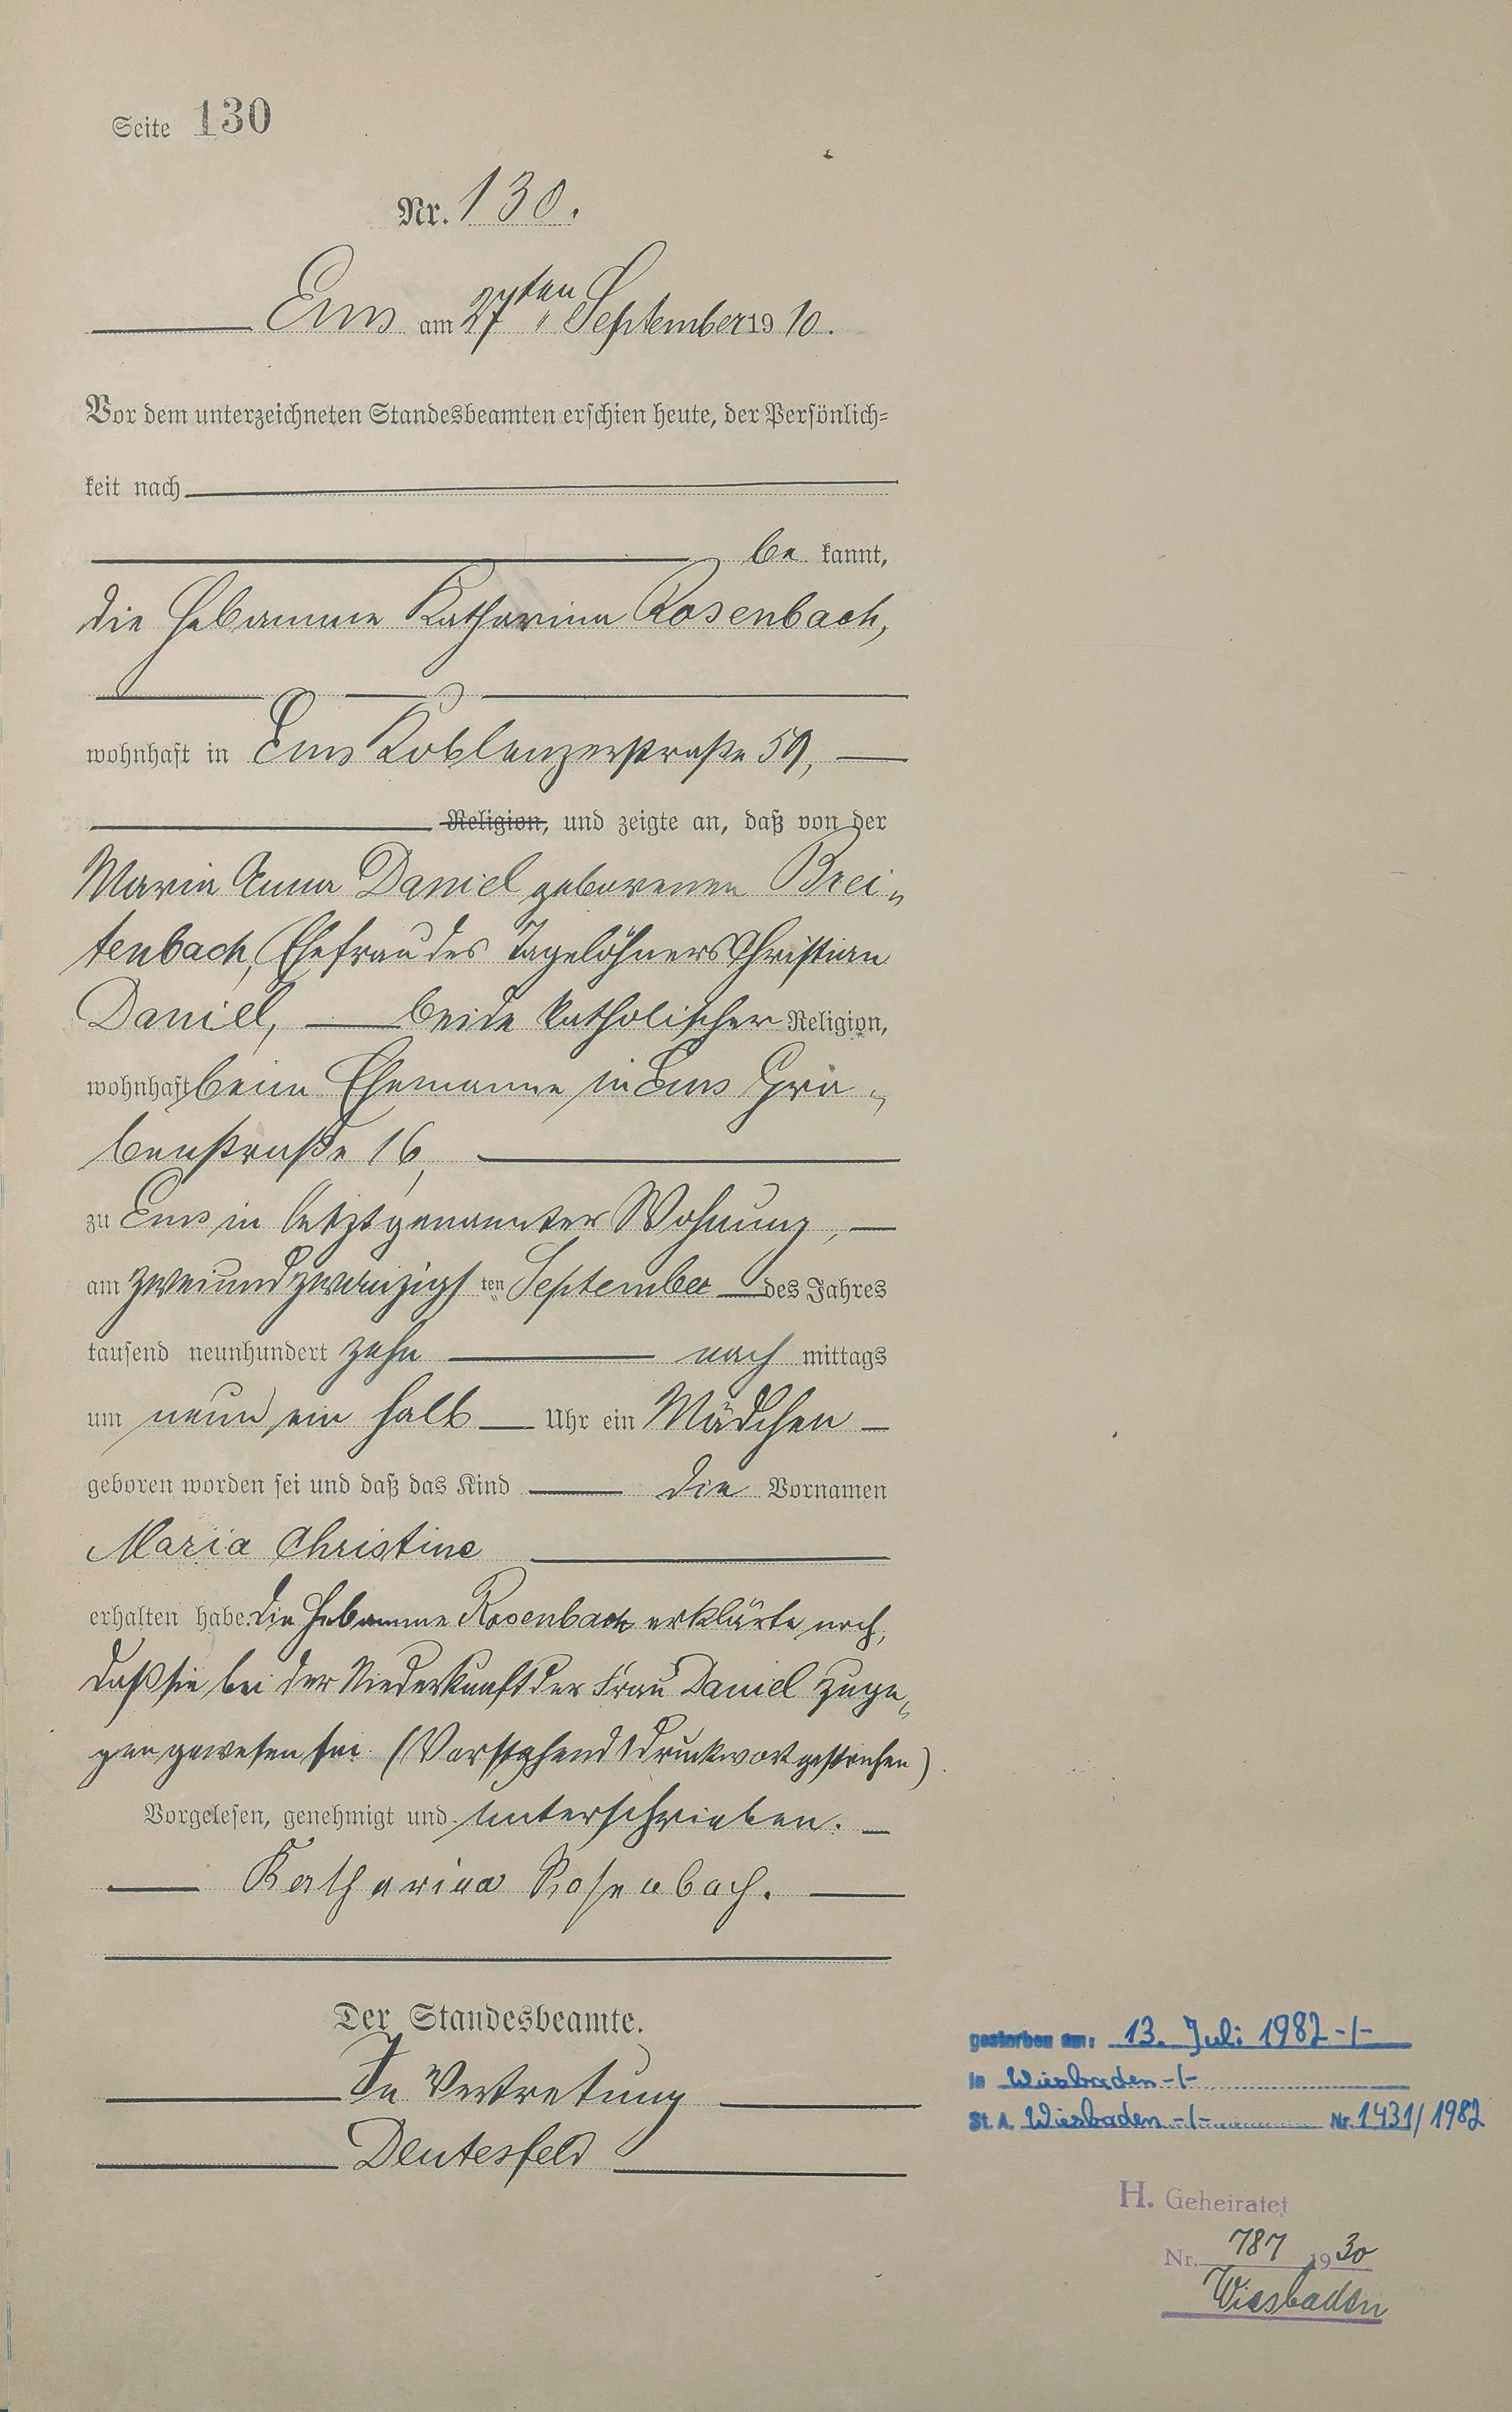 Seite 130
Nr. 130.
Ems am 27ten September 1910.
Vor dem unterzeichneten Standesbeamten erschien heute, der Persönlich-
keit nach
be kannt,
die Hebamme Katharina Rosenbach,
wohnhaft in Ems Koblenzerstraße 59,
Religion, und zeigte an, daß von der
Maria Anna Daniel geborenen Brei-
tenbach, Ehefrau des Tagelöhners Christian
Daniel, beide katholischer Religion,
wohnhaft beim Ehemanne in Ems Grä-
benstraße 16,
zu Ems in letztgenannter Wohnung,
am zweiundzwanzigsten September des Jahres
tausend neunhundert zehn nach mittags
um neun ein halb Uhr ein Mädchen
geboren worden sei und daß das Kind die Vornamen
Maria Christine
erhalten habe. Die Hebamme Rosenbach erklärte noch,
daß sie bei der Niederkunft der Frau Daniel zuge-
gen gewesen sei. (Vorstehend 1 Druckwort gestrichen).
Vorgelesen, genehmigt und unterschrieben.
Katharina Rosenbach.
Der Standesbeamte.
In Vertretung
Deutesfeld
gestorben am: 13. Juli 1982 -/-
in Wiesbaden -/-
St. A. Wiesbaden -/- Nr. 1431/1982
H. Geheiratet
Nr. 787 1930
Wiesbaden